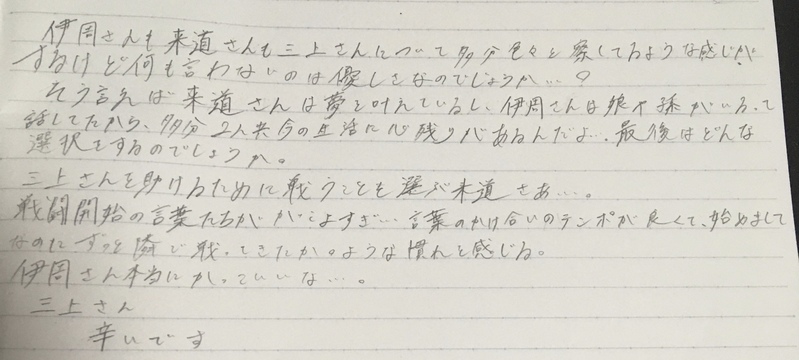 伊周さんも来道さんも三上さんについて多分色々と察してるような感じが
するけど何も言わないのは優しさなのでしょうか…?
そう言えば来道さんは夢を叶えているし、伊周さんは娘や孫がいるって
話してたから、多分2人共今の生活に心残りがあるんだよ…。最後はどんな
選択をするのでしょうか。
三上さんを助けるために戦うことも選ぶ来道さぁ…。
戦闘開始の言葉たちがかっこよすぎ…言葉のかけ合いのテンポが良くて、始めまして
なのにずっと隣で戦ってきたかのような慣れを感じる。
伊周さん本当にかっこいいな…。
三上さん
辛いです